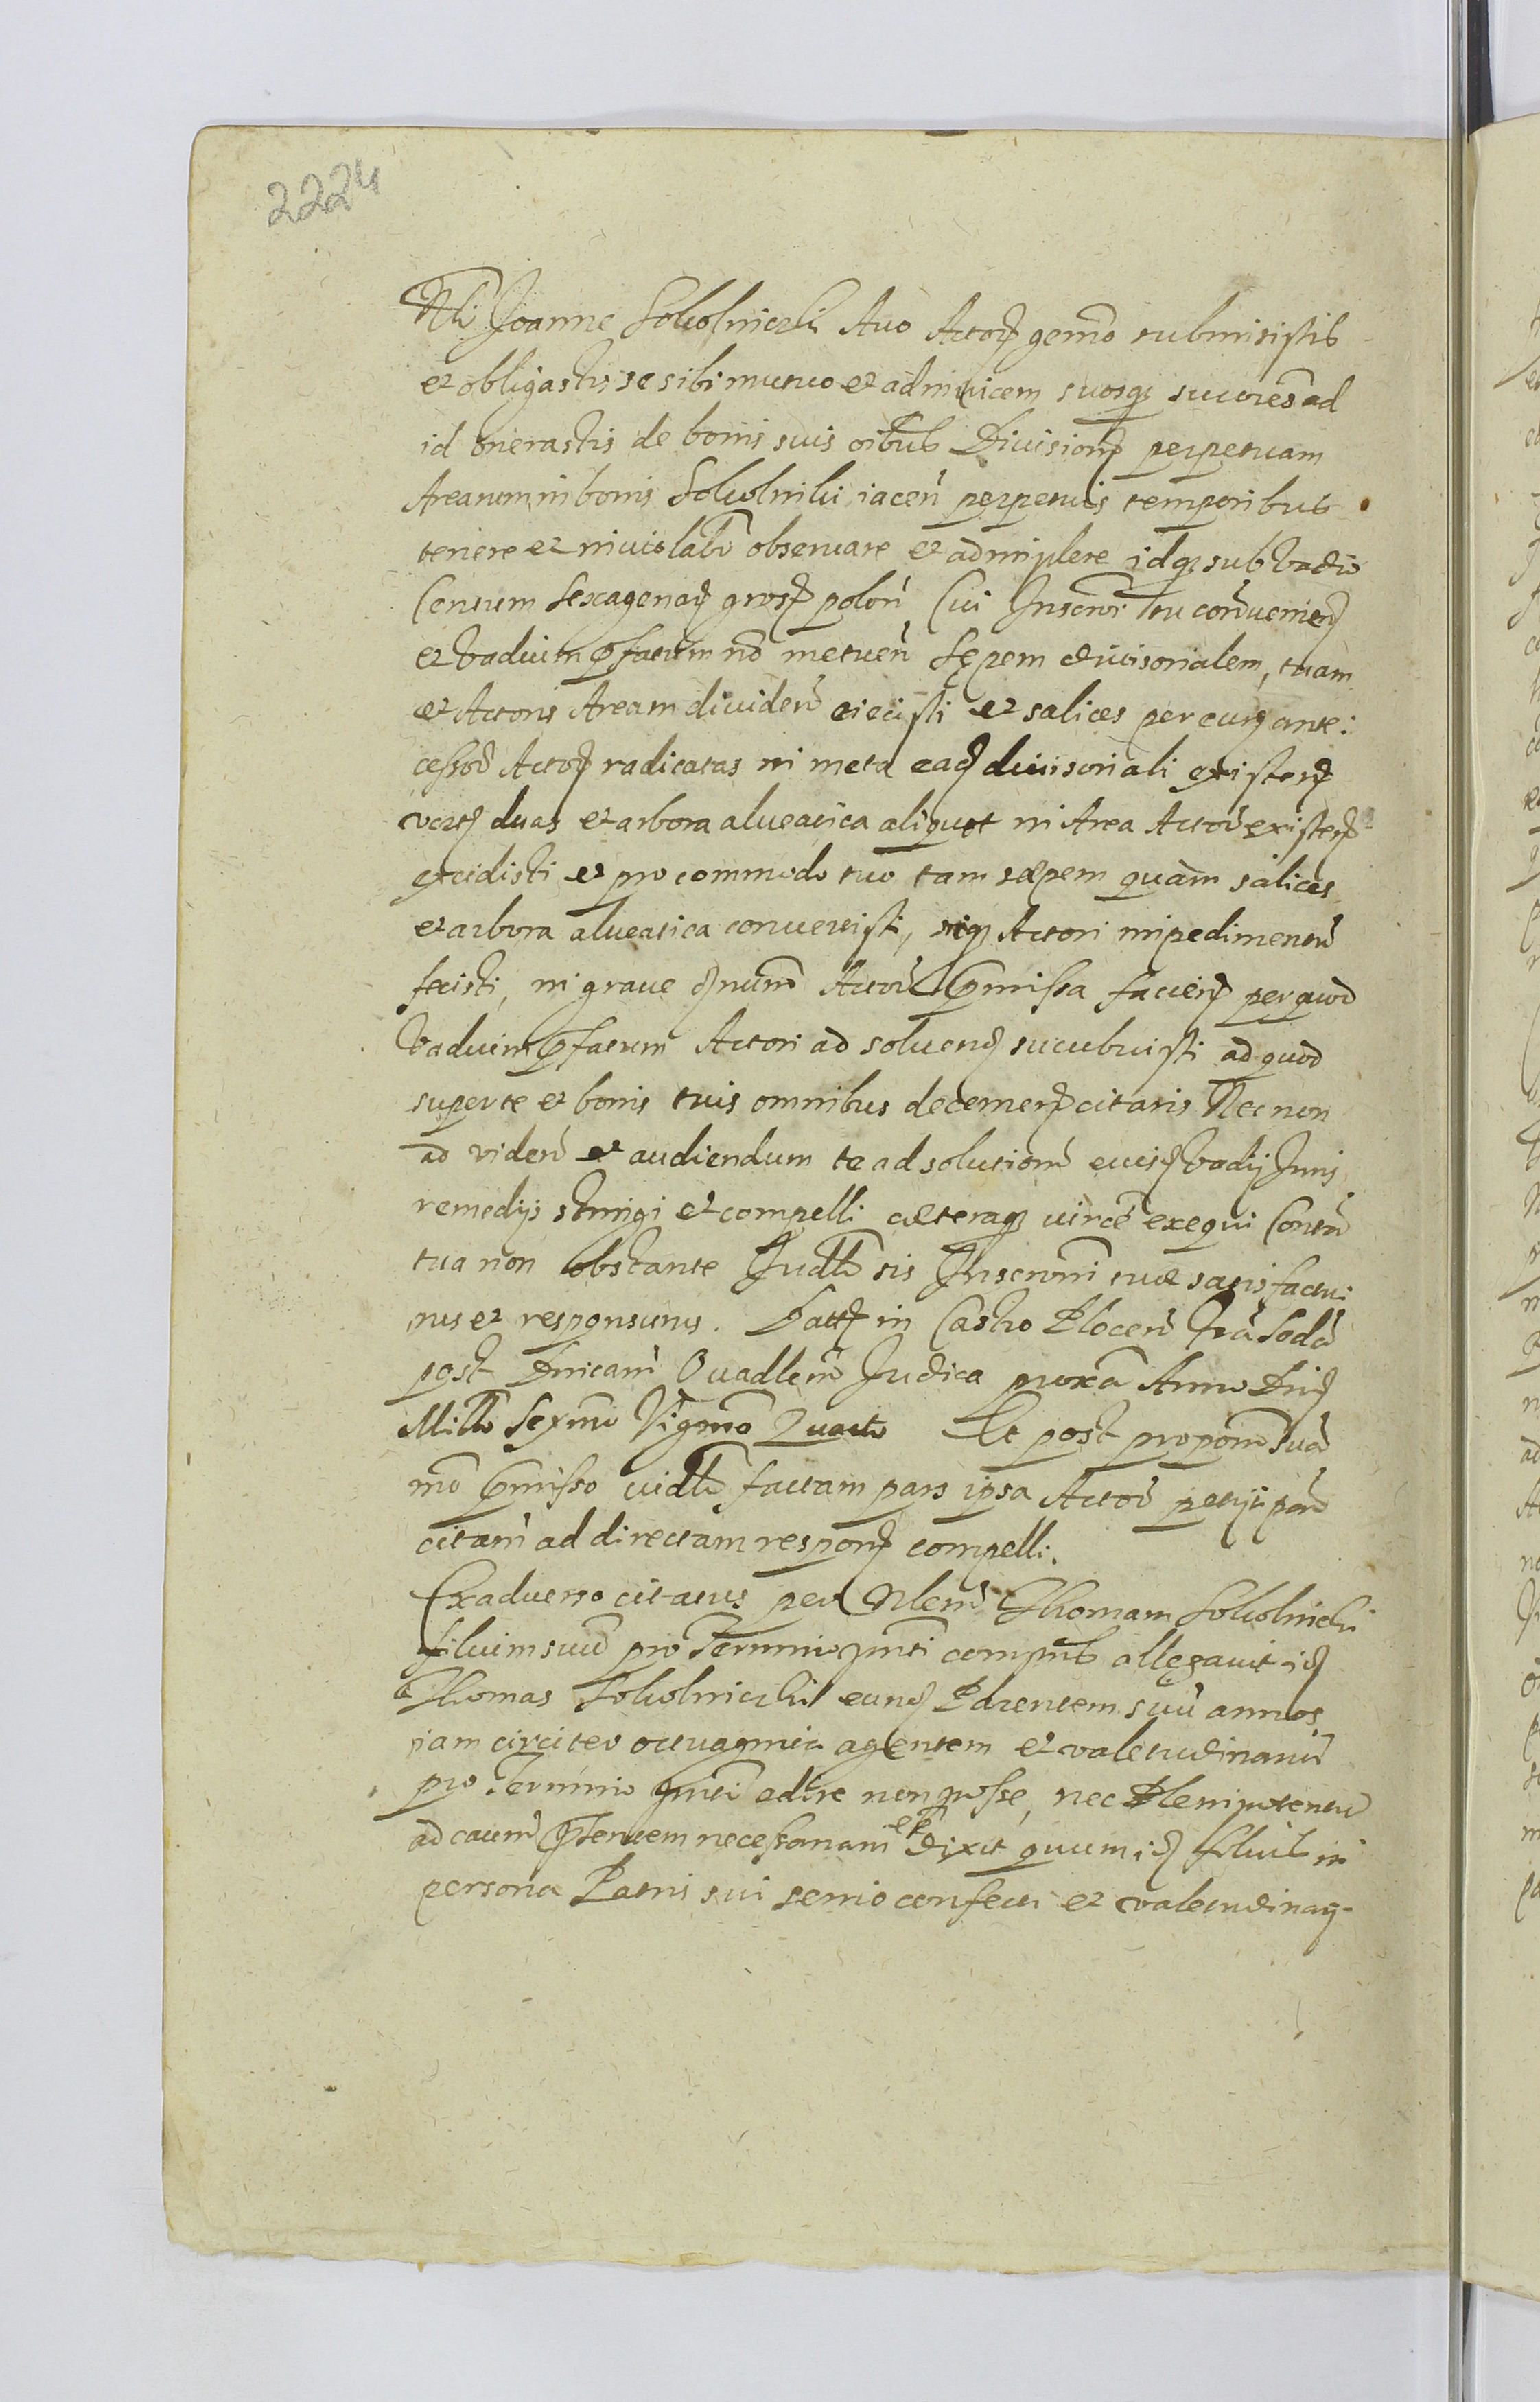 2224
Nli Joanne Sokolniczki Auo Actor gemo submisistis
et obligastis se sibi mutuo et adinuicem suosq sucores ad
id onerastis de bonis suis oibus Diuision perpetuam
Arearum in bonis Sokolniki iacen perpetuis temporibus
tenere et inuiolabr obseruare et adimplere idq sub vadio
Centum sexagenar gros polon, Cui Inscroi tu conueniens
et vadium pfatum no metuen Sepem diuisorialem, tuam
et Actoris Aream diuiden eiecisti et salices per eung ante:
cessore Actor radicatas in meta ead diuisoriali existen
duas et arbora aluearica aliquot in Area Actor existen
excidisti et pro commodo tuo tam sæpem quàm salices
et arbora aluearica conuertisti, sicq Actori impedimentu
fecisti, in graue dnum Actor pmissa facien per quod
vadium pfatum Actori ad soluend sucubuisti ad quod
super te et bonis tuis omnibus decernen citaris Nec non
ad viden et audiendum te ad solutione eiusd vadij Juris
remedijs stringi et compelli cæteraq circa exequi Contu
tua non obstante Judtr sis Inscroni tuæ satisfactu:
rus et responsurus. Datt in Castro Plocen fria Soda
post Dnicam Quadlem Judica proxa Anno Dni
Millo Sexmo Vigmo Quarto Et post propoem sua
mo pmisso vidlt factam pars ipsa Actor petijt par
citam ad directam respons compelli.
Ex aduerso citatus per Nlem Thomam Sokolniczki
filium suu pro Termino pnti compns allegauit id
Thomas Sokolniczki eund Parentem suu annos
iam circiter octuaginta agentem et valetudinariu
pro Termino pnti adire non posse, nec Plenipotentem
ad causm pntem necessariam esse dixit quum id filius in
persona Patris sui senio confecti et valetudinarij